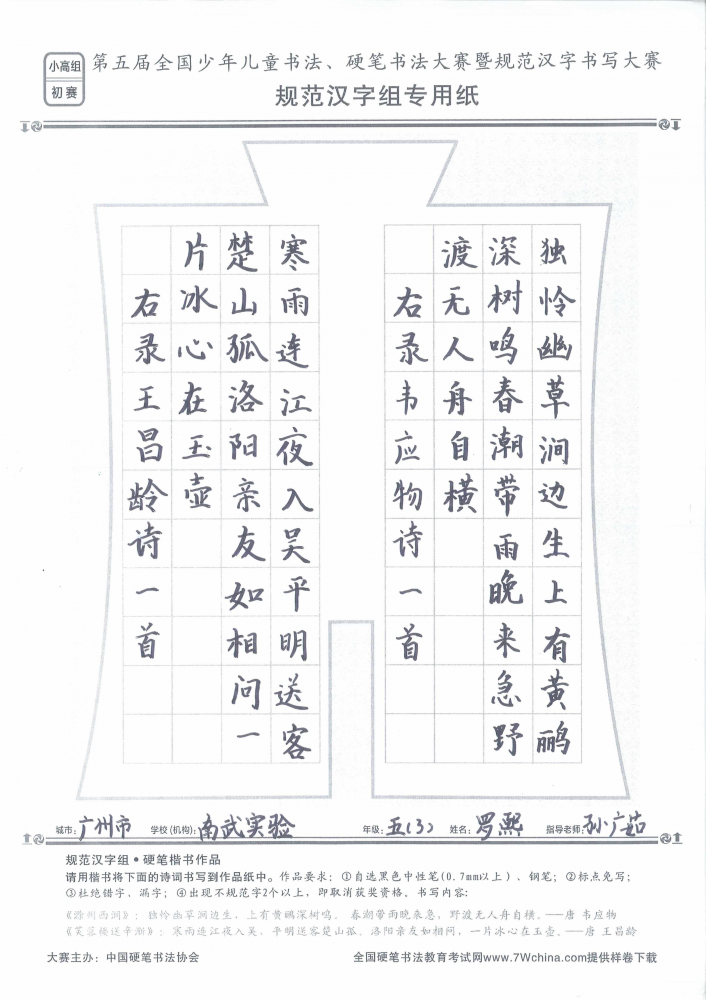 小高组
初赛
第五届全国少年儿童书法、硬笔书法大赛暨规范汉字书写大赛
规范汉字组专用纸
独怜幽草涧边生上有黄鹂
深树鸣春潮带雨晚来急野
渡无人舟自横
右录韦应物诗一首
寒雨连江夜入吴平明送客
楚山孤洛阳亲友如相问一
片冰心在玉壶
右录王昌龄诗一首
城市：广州市 学校(机构)：南武实验 年级：五(3) 姓名：罗熙 指导老师：孙广茹
规范汉字组•硬笔楷书作品
请用楷书将下面的诗词书写到作品纸中。作品要求：①自选黑色中性笔(0.7mm以上)、钢笔；②标点免写；
③杜绝错字、漏字；④出现不规范字2个以上，即取消获奖资格、书写内容：
《滁州西涧》：独怜幽草涧边生，上有黄鹂深树鸣。春潮带雨晚来急，野渡无人舟自横。——唐 韦应物
《芙蓉楼送辛渐》：寒雨连江夜入吴，平明送客楚山孤。洛阳亲友如相问，一片冰心在玉壶。——唐 王昌龄
大赛主办：中国硬笔书法协会 全国硬笔书法教育考试网www.7Wchina.com提供样卷下载